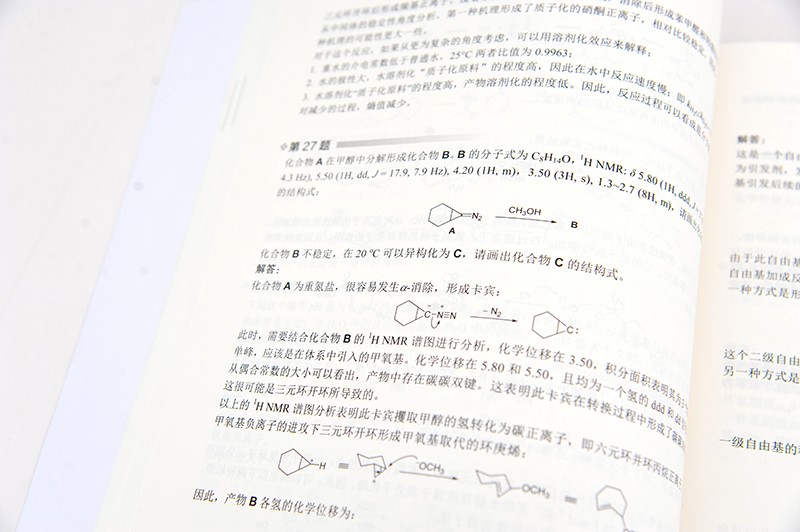 三元环开环后形成羰基正离子，
消除后形成苯甲醛和
从中间体的稳定性角度分析，第一种机理形成了质子化的硝酮正离子，相对比较稳定，
种机理的可能性更大一些。
对于这个反应，如果从更为复杂的角度考虑，可以用溶剂化效应来解释：
1. 重水的介电常数低于普通水，25°C 两者比值为 0.9963；
2. 水的极性大，水溶剂化“质子化原料”的程度高，因此在水中反应速度慢；即
3. 水溶剂化“质子化原料”的程度高，产物溶剂化的程度低。因此，反应过程可以看成
对减少的过程，熵值减少。
第 27 题
化合物 A 在甲醇中分解形成化合物 B。B 的分子式为 C₈H₁₄O，¹H NMR: δ 5.80 (1H, ddd, J =
4.3 Hz), 5.50 (1H, dd, J = 17.9, 7.9 Hz), 4.20 (1H, m)，3.50 (3H, s), 1.3~2.7 (8H, m)，请画出
的结构式：
N₂
CH₃OH
B
A
化合物 B 不稳定，在 20 °C 可以异构化为 C，请画出化合物 C 的结构式。
解答：
化合物 A 为重氮盐，很容易发生α-消除，形成卡宾：
C−N≡N
− N₂
C:
此时，需要结合化合物 B 的 ¹H NMR 谱图进行分析，化学位移在 3.50，积分面积表明其为
单峰，应该是在体系中引入的甲氧基。化学位移在 5.80 和 5.50，且均为一个氢的 ddd 和 dd
从偶合常数的大小可以看出，产物中存在碳碳双键。这表明此卡宾在转换过程中形成了
这很可能是三元环开环所导致的。
以上的 ¹H NMR 谱图分析表明此卡宾攫取甲醇的氢转化为碳正离子，即六元环并环丙烷正离
甲氧基负离子的进攻下三元环开环形成甲氧基取代的环庚烯：
H
OCH₃
OCH₃
因此，产物 B 各氢的化学位移为：
解答：
这是一个自由
为引发剂，
基引发后续的
由于此自由基
自由基加成反
一种方式是形
这个二级自由
另一种方式是
一级自由基的